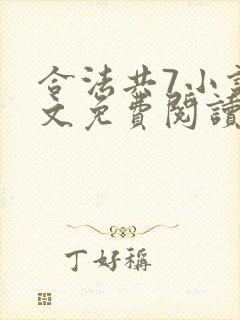 合法共7小說
文免費閱讀
丁好稱